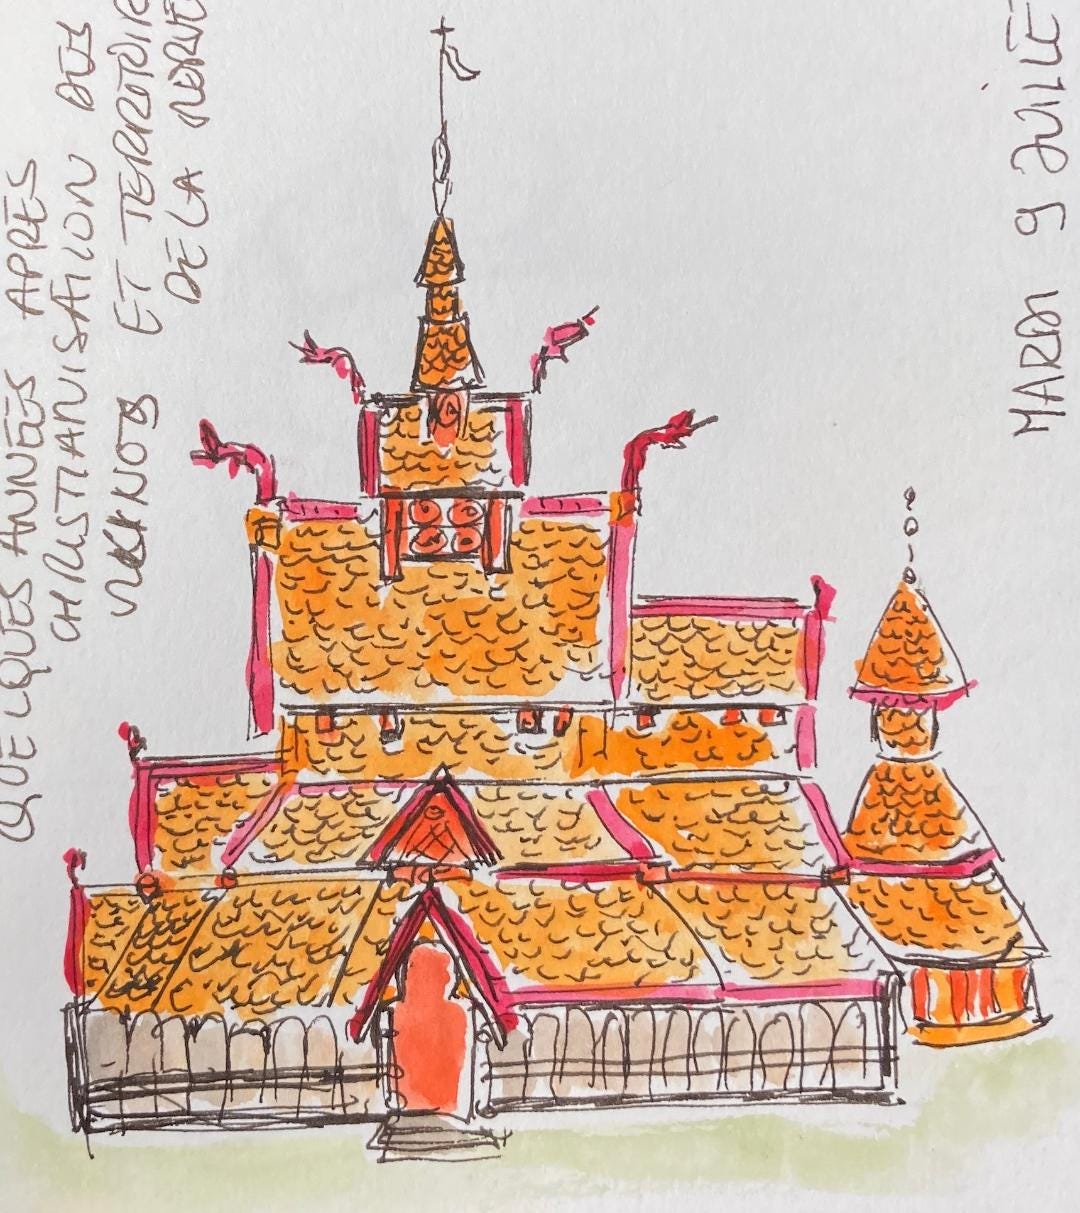 QUELQUES ANNÉES APRÈS
CHRISTIANISATION DES
VIKINGS ET TERRITOIR
DE LA NORVE
MARDI 9 JUILLE